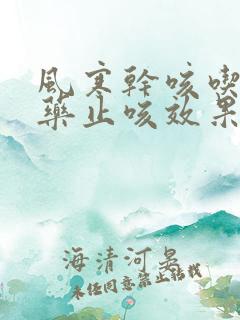 风寒幹咳喫
药止咳效果
海清河晏
未经同意禁止转载